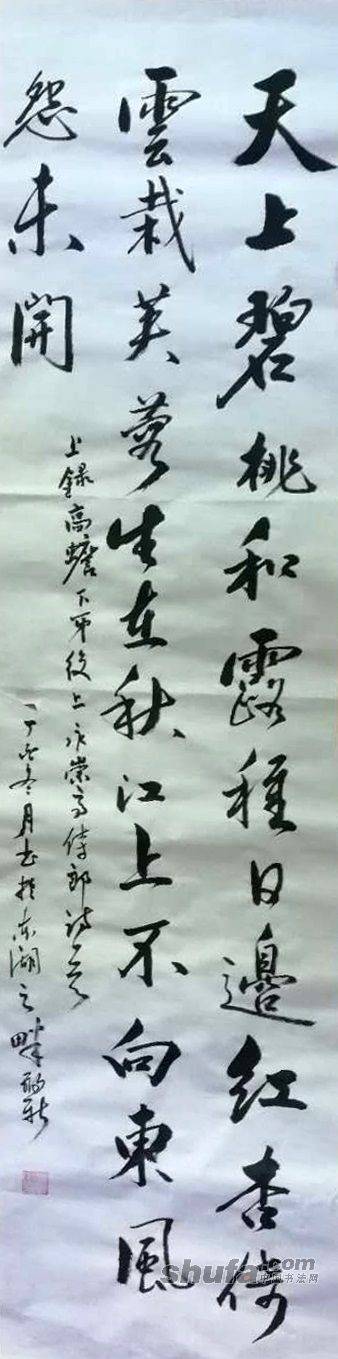 天上碧桃和露種日邊紅杏倚
雲栽芙蓉生在秋江上不向東風
怨未開
上録高蟾下第後上永崇高侍郎詩一首
丁酉冬月書於东湖之畔
shufa.com
中国书法网